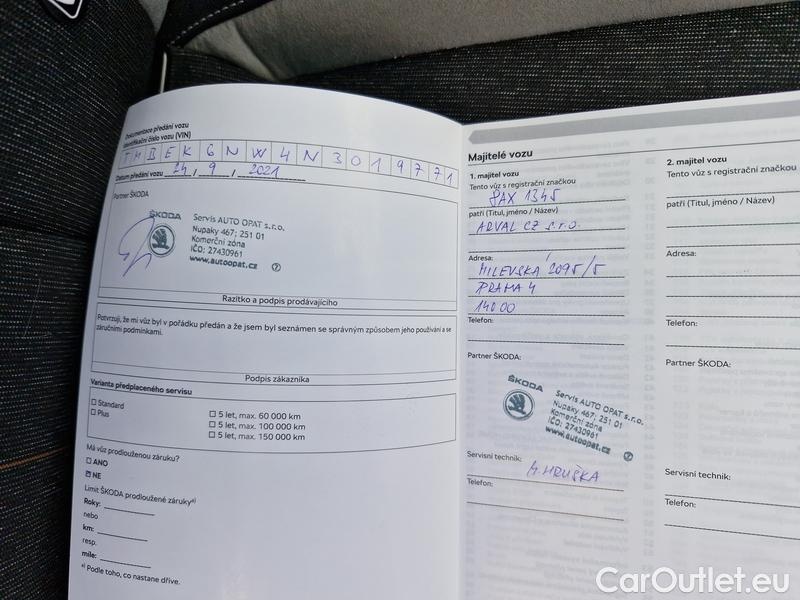 Dokumentace předání vozu
Identifikační číslo vozu (VIN)
TMBEK6NW4N3019771
Datum předání vozu 24 / 9 / 2021
Partner ŠKODA
ŠKODA
Servis AUTO OPAT s.r.o.
Nupaky 467; 251 01
Komerční zóna
IČO: 27430961
www.autoopat.cz
7
Razítko a podpis prodávajícího
Potvrzuji, že mi vůz byl v pořádku předán a že jsem byl seznámen se správným způsobem jeho používání a se
záručními podmínkami.
Podpis zákazníka
Varianta předplaceného servisu
Standard
Plus
5 let, max. 60 000 km
5 let, max. 100 000 km
5 let, max. 150 000 km
Má vůz prodlouženou záruku?
ANO
NE
Limit ŠKODA prodloužené záruky a)
Roky:
nebo
km:
resp.
míle:
a) Podle toho, co nastane dříve.
Majitelé vozu
1. majitel vozu
Tento vůz s registrační značkou
8AX 1345
patří (Titul, jméno / Název)
ARVAL CZ s.r.o.
Adresa:
MILEVSKÁ 2095/5
PRAHA 4
14000
Telefon:
Partner ŠKODA:
ŠKODA
Servis AUTO OPAT s.r.o.
Nupaky 467; 251 01
Komerční zóna
IČO: 27430961
www.autoopat.cz
7
Servisní technik:
M. HRUŠKA
Telefon:
2. majitel vozu
Tento vůz s registrační značkou
patří (Titul, jméno / Název)
Adresa:
Telefon:
Partner ŠKODA:
Servisní technik:
Telefon:
CarOutlet.eu